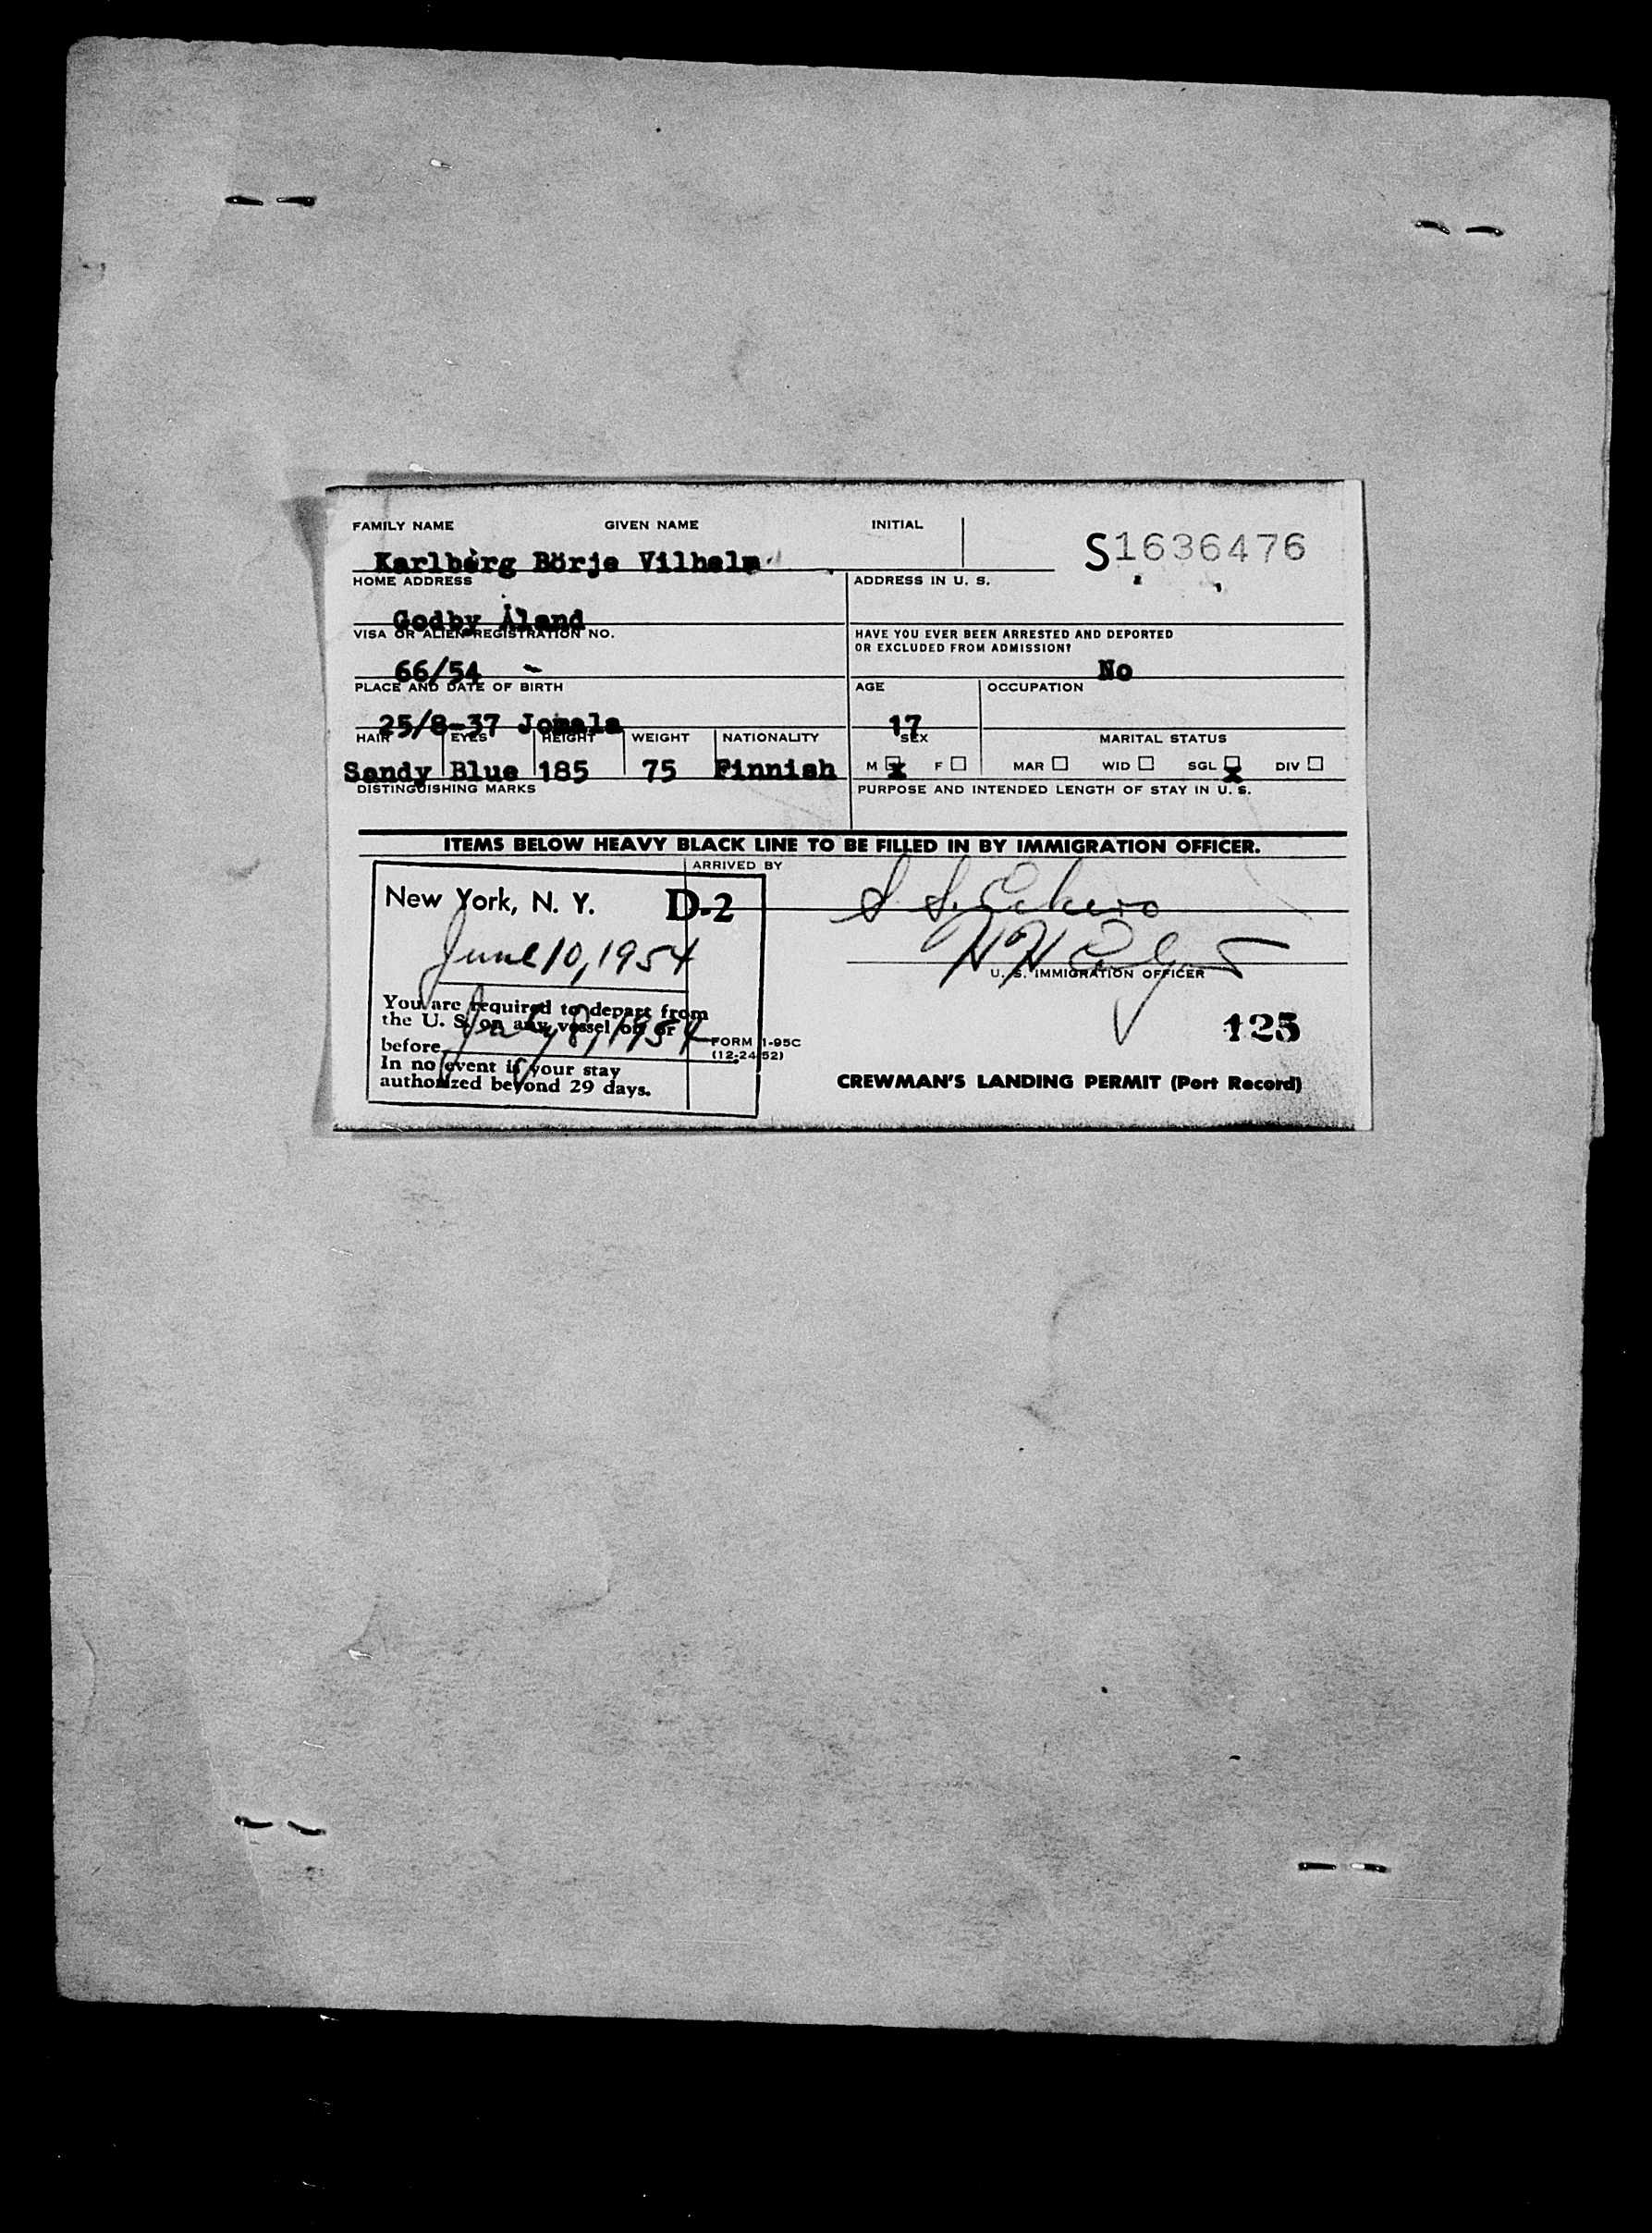 FAMILY NAME GIVEN NAME INITIAL
S1636476
Karlberg Börje Vilhelm
HOME ADDRESS ADDRESS IN U. S.
Godby Åland
VISA OR ALIEN REGISTRATION NO. HAVE YOU EVER BEEN ARRESTED AND DEPORTED
OR EXCLUDED FROM ADMISSION?
66/54 - No
PLACE AND DATE OF BIRTH AGE OCCUPATION
25/8-37 Jomala 17
HAIR EYES HEIGHT WEIGHT NATIONALITY SEX MARITAL STATUS
Sandy Blue 185 75 Finnish M x F MAR WID SGL x DIV
DISTINGUISHING MARKS PURPOSE AND INTENDED LENGTH OF STAY IN U. S.
ITEMS BELOW HEAVY BLACK LINE TO BE FILLED IN BY IMMIGRATION OFFICER.
ARRIVED BY
New York, N. Y. D-2 S. S. Eckero
June 10, 1954
U. S. IMMIGRATION OFFICER
You are required to depart from
the U. S. on any vessel on or
before July 8, 1954
In no event is your stay
authorized beyond 29 days.
FORM I-95C
(12-24-52)
125
CREWMAN'S LANDING PERMIT (Port Record)